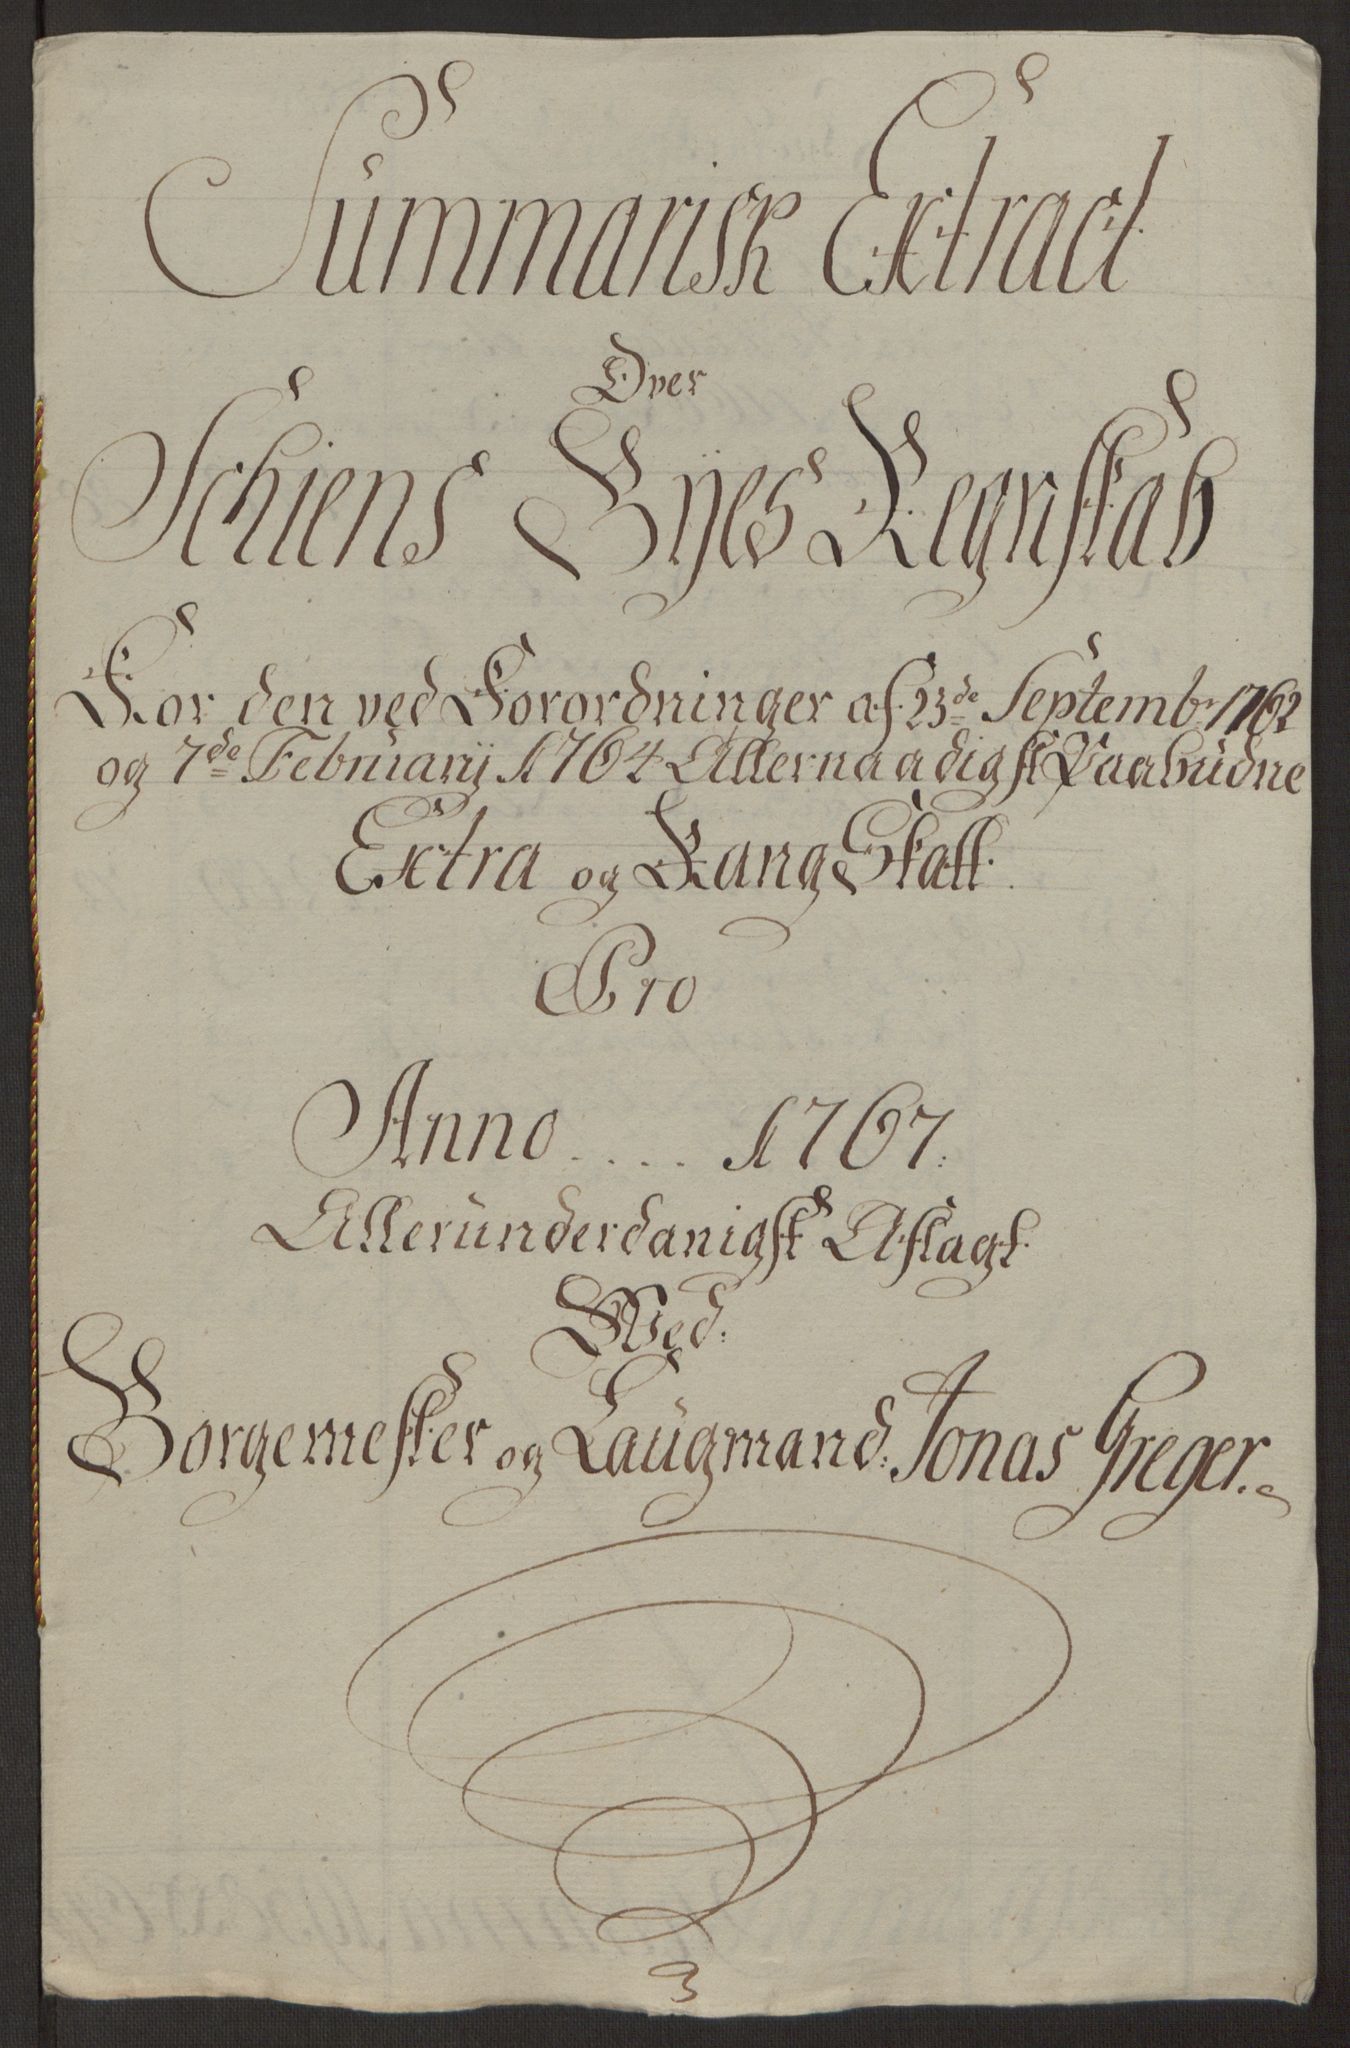 Summarisk Extract
Over
Schiens Byes Regnskab
For den ved Forordninger af 23de Septembr 1762
og 7de Februarij 1764 Allernaadigst Paabudne
Extra og Rang Skatt.
Pro
Anno .... 1767.
Allerunderdanigst Aflagt.
Med.
Borgemester og Laugmand: Jonas Greger.